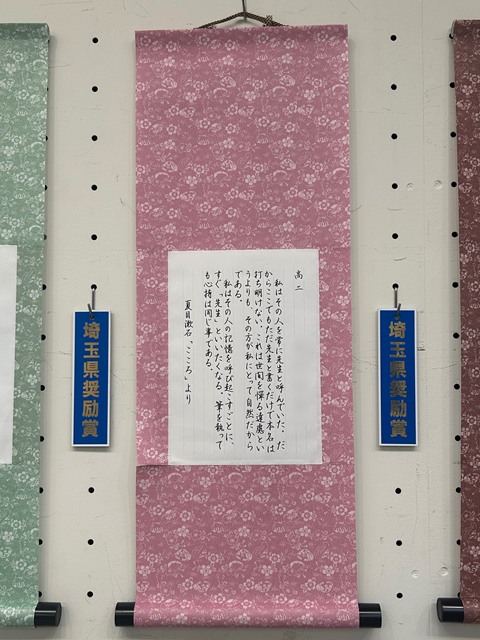 高二
私はその人を常に先生と呼んでいた。だ
からここでもただ先生と書くだけで本名は
打ち明けない。これは世間を憚る遠慮とい
うよりも、その方が私にとって自然だから
である。
私はその人の記憶を呼び起こすごとに、
すぐ「先生」といいたくなる。筆を執って
も心持は同じ事である。
夏目漱石「こころ」より
埼玉県奨励賞
埼玉県奨励賞